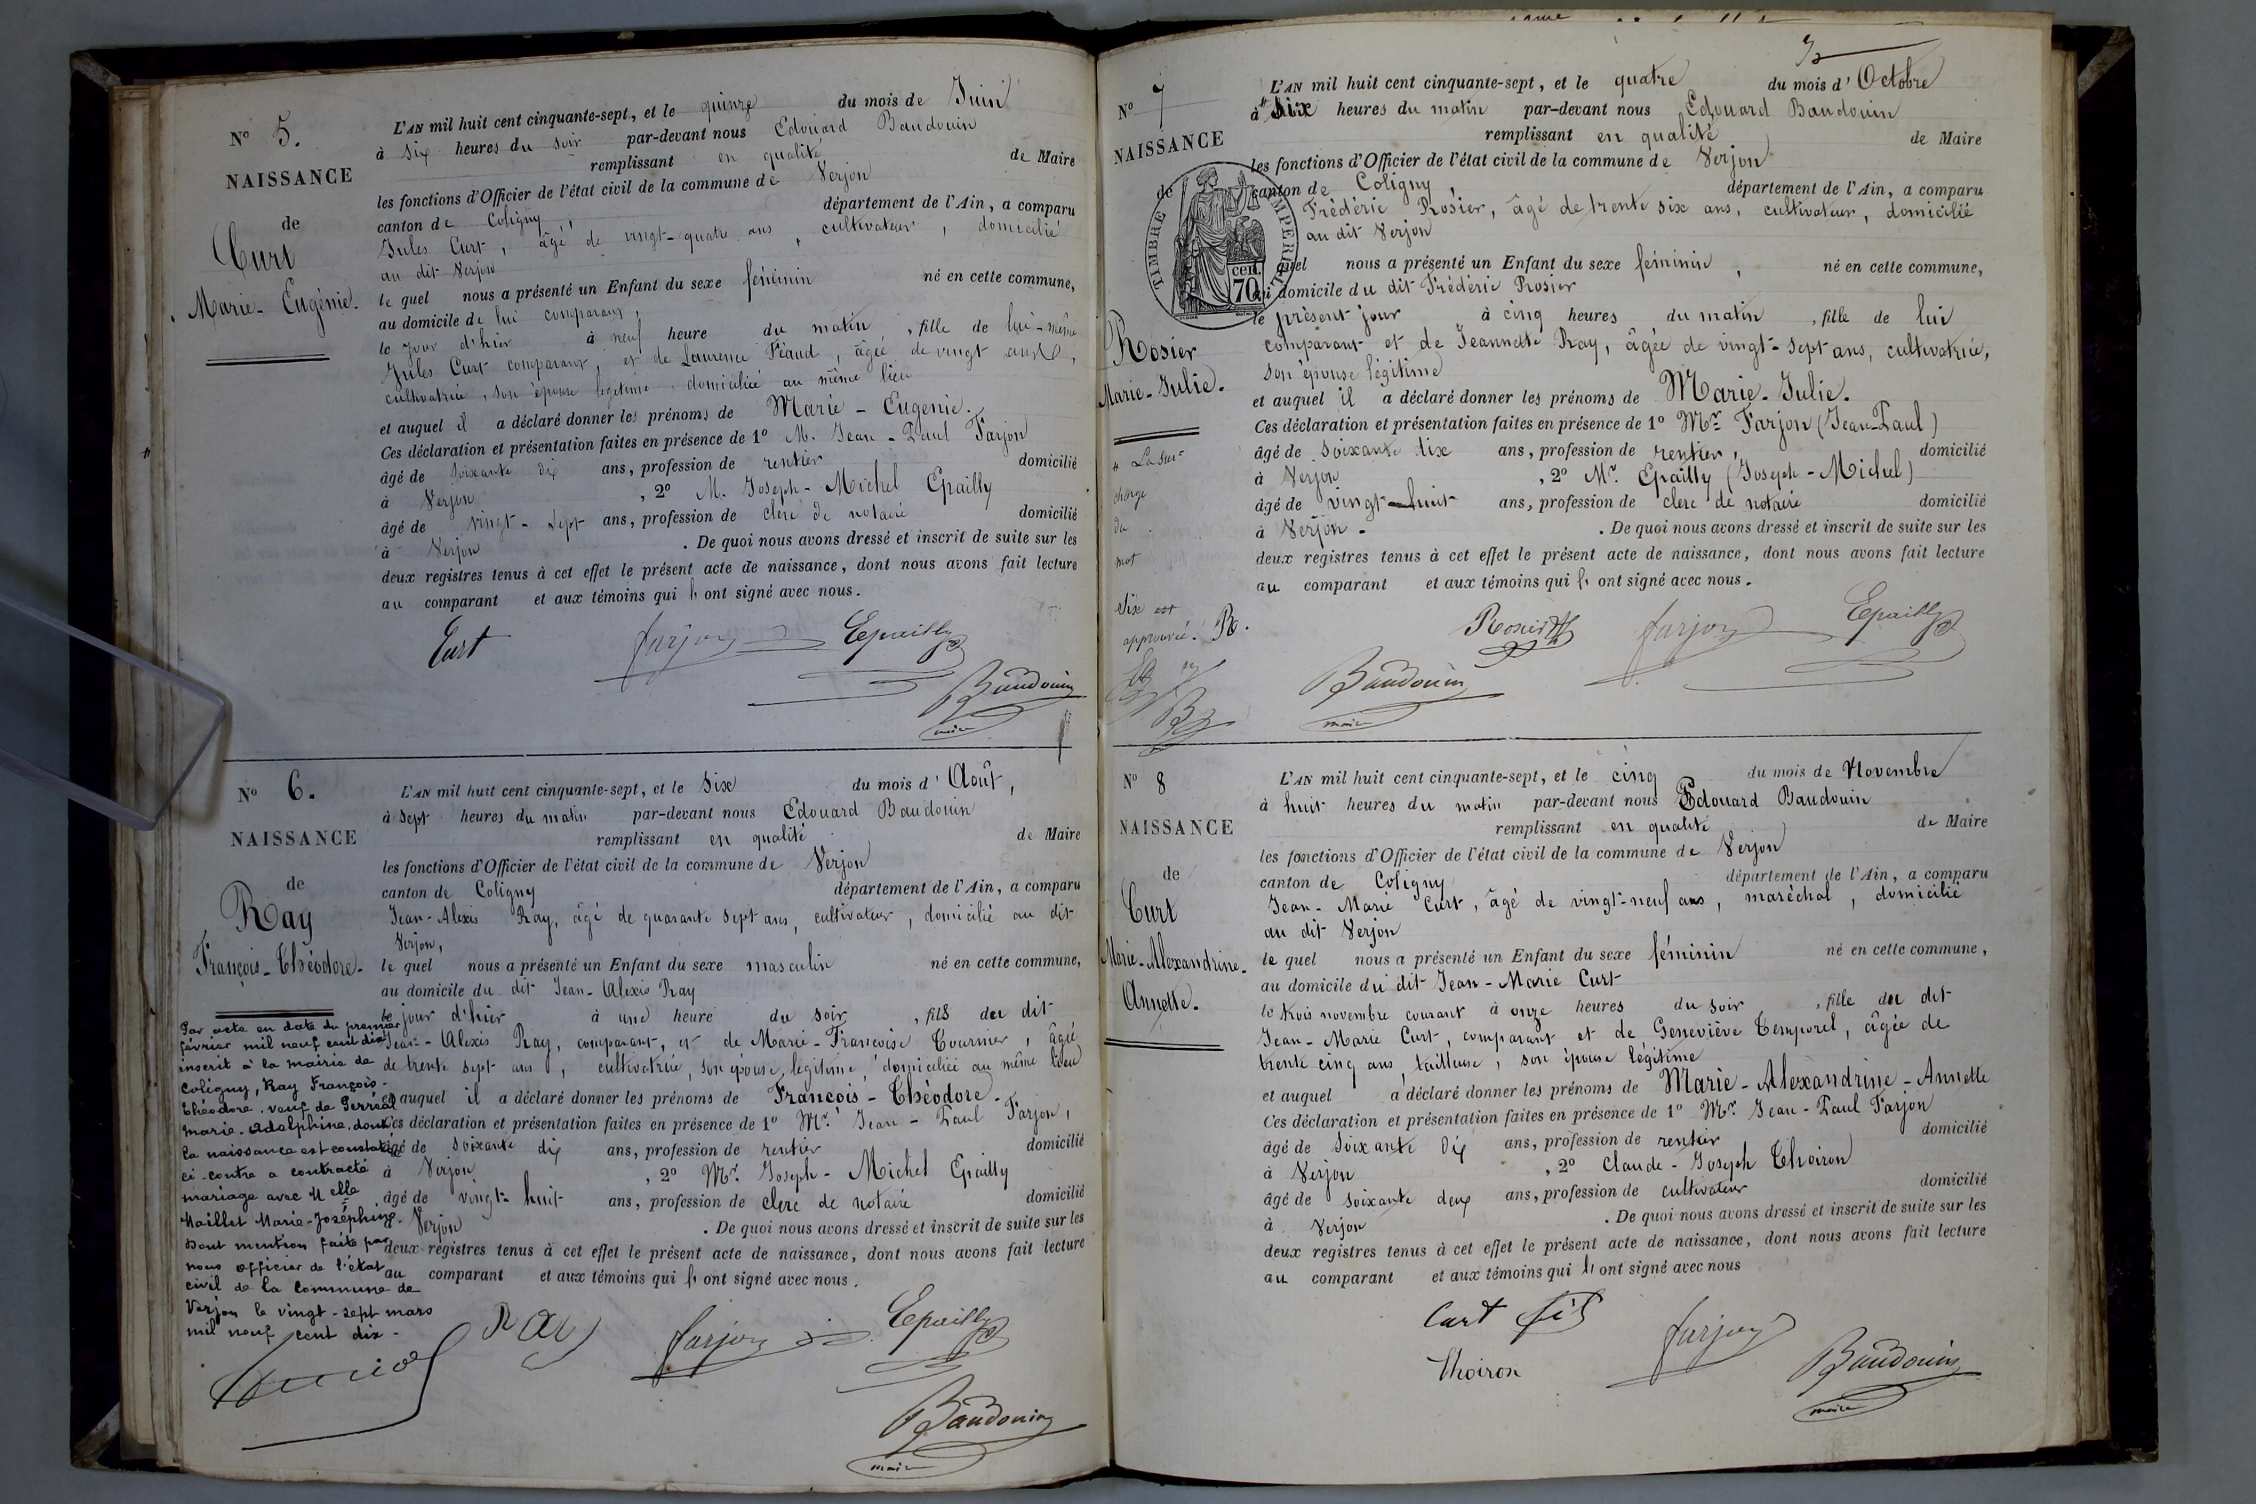 N° 5.
NAISSANCE
de
Curt
Marie-Eugénie.
L'AN mil huit cent cinquante-sept, et le quinze du mois de Juin
à six heures du soir par-devant nous Edouard Baudouin
remplissant en qualité de Maire
les fonctions d'Officier de l'état civil de la commune de Verjon
canton de Coligny, département de l'Ain, a comparu
Jules Curt, âgé de vingt-quatre ans, cultivateur, domicilié
au dit Verjon
le quel nous a présenté un Enfant du sexe féminin né en cette commune,
au domicile de lui comparant,
le jour d'hier à neuf heure du matin, fille de lui-même
Jules Curt comparant, et de Laurence Féaud, âgée de vingt ans,
cultivatrice, son épouse légitime domiciliée au même lieu
et auquel il a déclaré donner les prénoms de Marie-Eugenie.
Ces déclaration et présentation faites en présence de 1° M. Jean-Paul Farjon
âgé de soixante dix ans, profession de rentier domicilié
à Verjon, 2° M. Joseph-Michel Epailly
âgé de vingt-sept ans, profession de clerc de notaire domicilié
à Verjon. De quoi nous avons dressé et inscrit de suite sur les
deux registres tenus à cet effet le présent acte de naissance, dont nous avons fait lecture
au comparant et aux témoins qui ont signé avec nous.
Curt farjon Epailly
Baudouin
maire
N° 6.
NAISSANCE
de
Ray
François-Théodore.
L'AN mil huit cent cinquante-sept, et le six du mois d'Août,
à sept heures du matin par-devant nous Edouard Baudouin
remplissant en qualité de Maire
les fonctions d'Officier de l'état civil de la commune de Verjon
canton de Coligny département de l'Ain, a comparu
Jean-Alexis Ray, âgé de quarante sept ans, cultivateur, domicilié au dit
Verjon,
le quel nous a présenté un Enfant du sexe masculin né en cette commune,
au domicile du dit Jean-Alexis Ray
le jour d'hier à une heure du soir, fils du dit
Jean-Alexis Ray, comparant, et de Marie-Françoise Tournier, âgée
de trente sept ans, cultivatrice, son épouse légitime, domiciliée au même lieu
et auquel il a déclaré donner les prénoms de François-Théodore.
Ces déclaration et présentation faites en présence de 1° Mr. Jean-Paul Farjon,
âgé de soixante dix ans, profession de rentier domicilié
à Verjon, 2° Mr. Joseph-Michel Epailly
âgé de vingt-huit ans, profession de clerc de notaire domicilié
à Verjon. De quoi nous avons dressé et inscrit de suite sur les
deux registres tenus à cet effet le présent acte de naissance, dont nous avons fait lecture
au comparant et aux témoins qui ont signé avec nous.
Par acte en date du premier
février mil neuf cent dix
inscrit à la mairie de
Coligny, Ray François-
Théodore, veuf de Perréal
Marie-Adolphine, dont
la naissance est constatée
ci-contre a contracté
mariage avec Melle
Maillet Marie-Joséphine.
Dont mention faite par
nous officier de l'état
civil de la Commune de
Verjon le vingt-sept mars
mil neuf cent dix-
Ray farjon Epailly
Baudouin
maire
N° 7
NAISSANCE
de
TIMBRE IMPERIAL
70 cen.
Rosier
Marie-Julie.
L'AN mil huit cent cinquante-sept, et le quatre du mois d'Octobre
à " six heures du matin par-devant nous Edouard Baudouin
remplissant en qualité de Maire
les fonctions d'Officier de l'état civil de la commune de Verjon
canton de Coligny, département de l'Ain, a comparu
Frédéric Rosier, âgé de trente six ans, cultivateur, domicilié
au dit Verjon
quel nous a présenté un Enfant du sexe féminin, né en cette commune,
domicile du dit Frédéric Rosier
le présent jour à cinq heures du matin, fille de lui
comparant et de Jeannette Ray, âgée de vingt-sept ans, cultivatrice,
son épouse légitime
et auquel il a déclaré donner les prénoms de Marie-Julie.
Ces déclaration et présentation faites en présence de 1° Mr Farjon (Jean-Paul)
âgé de soixante dix ans, profession de rentier, domicilié
à Verjon, 2° Mr. Epailly (Joseph-Michel)
âgé de vingt-huit ans, profession de clerc de notaire domicilié
à Verjon-. De quoi nous avons dressé et inscrit de suite sur les
deux registres tenus à cet effet le présent acte de naissance, dont nous avons fait lecture
au comparant et aux témoins qui ont signé avec nous.
" La sur-
charge
du
mot
six est
approuvé. R.
Rosier farjon Epailly
Baudouin
maire
N° 8
NAISSANCE
de
Curt
Marie-Alexandrine-
Annette.
L'AN mil huit cent cinquante-sept, et le cinq du mois de Novembre
à huit heures du matin par-devant nous Edouard Baudouin
remplissant en qualité de Maire
les fonctions d'Officier de l'état civil de la commune de Verjon
canton de Coligny département de l'Ain, a comparu
Jean-Marie Curt, âgé de vingt-neuf ans, maréchal, domicilié
au dit Verjon
le quel nous a présenté un Enfant du sexe féminin né en cette commune,
au domicile du dit Jean-Marie Curt
le trois novembre courant à onze heures du soir, fille du dit
Jean-Marie Curt, comparant et de Geneviève Temporel, âgée de
trente cinq ans, tailleuse, son épouse légitime
et auquel a déclaré donner les prénoms de Marie-Alexandrine-Annette
Ces déclaration et présentation faites en présence de 1° Mr. Jean-Paul Farjon
âgé de soixante dix ans, profession de rentier domicilié
à Verjon, 2° Claude-Joseph Thoiron
âgé de soixante deux ans, profession de cultivateur domicilié
à Verjon. De quoi nous avons dressé et inscrit de suite sur les
deux registres tenus à cet effet le présent acte de naissance, dont nous avons fait lecture
au comparant et aux témoins qui ont signé avec nous
Curt fils farjon
Thoiron Baudouin
maire